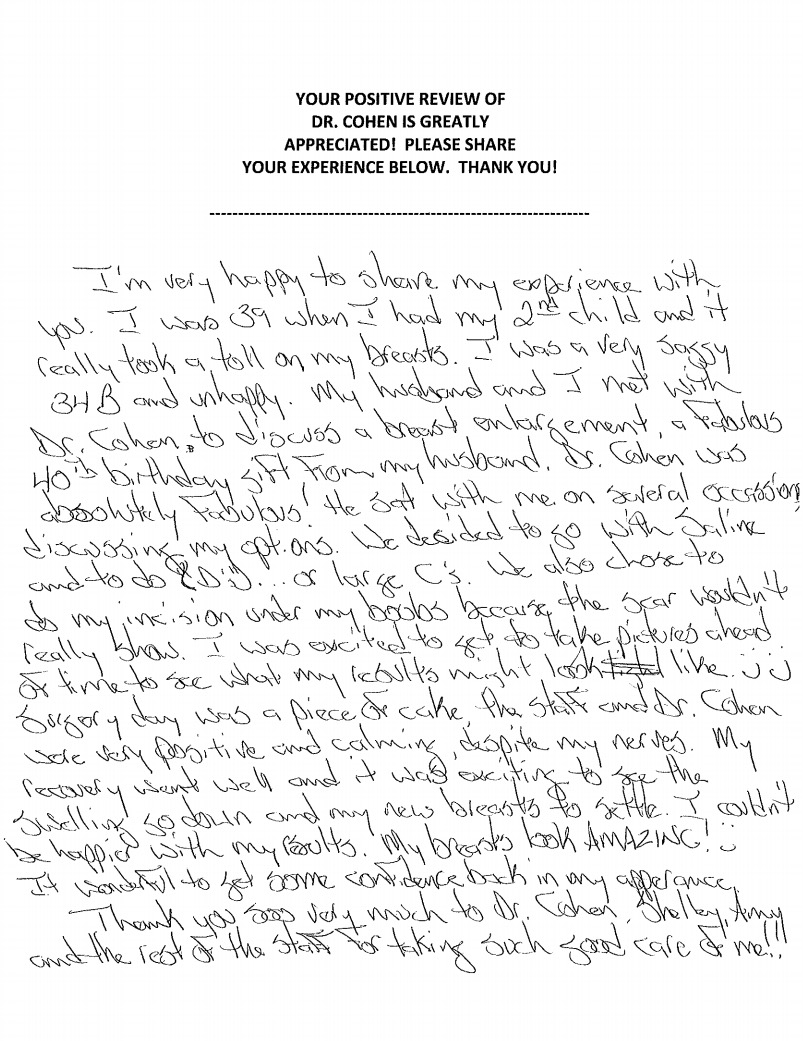 YOUR POSITIVE REVIEW OF
DR. COHEN IS GREATLY
APPRECIATED! PLEASE SHARE
YOUR EXPERIENCE BELOW. THANK YOU!
I'm very happy to share my experience with
you. I was 39 when I had my 2nd child and it
really took a toll on my breasts. I was a very saggy
34B and unhappy. My husband and I met with
Dr. Cohen, to discuss a breast enlargement, a fabulous
40th birthday gift from my husband. Dr. Cohen was
absolutely fabulous! He sat with me on several occassions,
discussing my options. We decided to go with Saline
and to do D... or large C's. We also chose to
do my incision under my boobs because the scar wouldn't
really show. I was excited to get to take pictures ahead
of time to see what my results might look like :) :)
Surgery day was a piece of cake, the staff and Dr. Cohen
were very positive and calming, despite my nerves. My
recovery went well and it was exciting to see the
swelling go down and my new breasts to settle. I couldn't
be happier with my results. My breasts look AMAZING! :)
It wonderful to get some confidence back in my apperance.
Thank you soo very much to Dr. Cohen, Shelley, Amy
and the rest of the staff for taking such good care of me!!